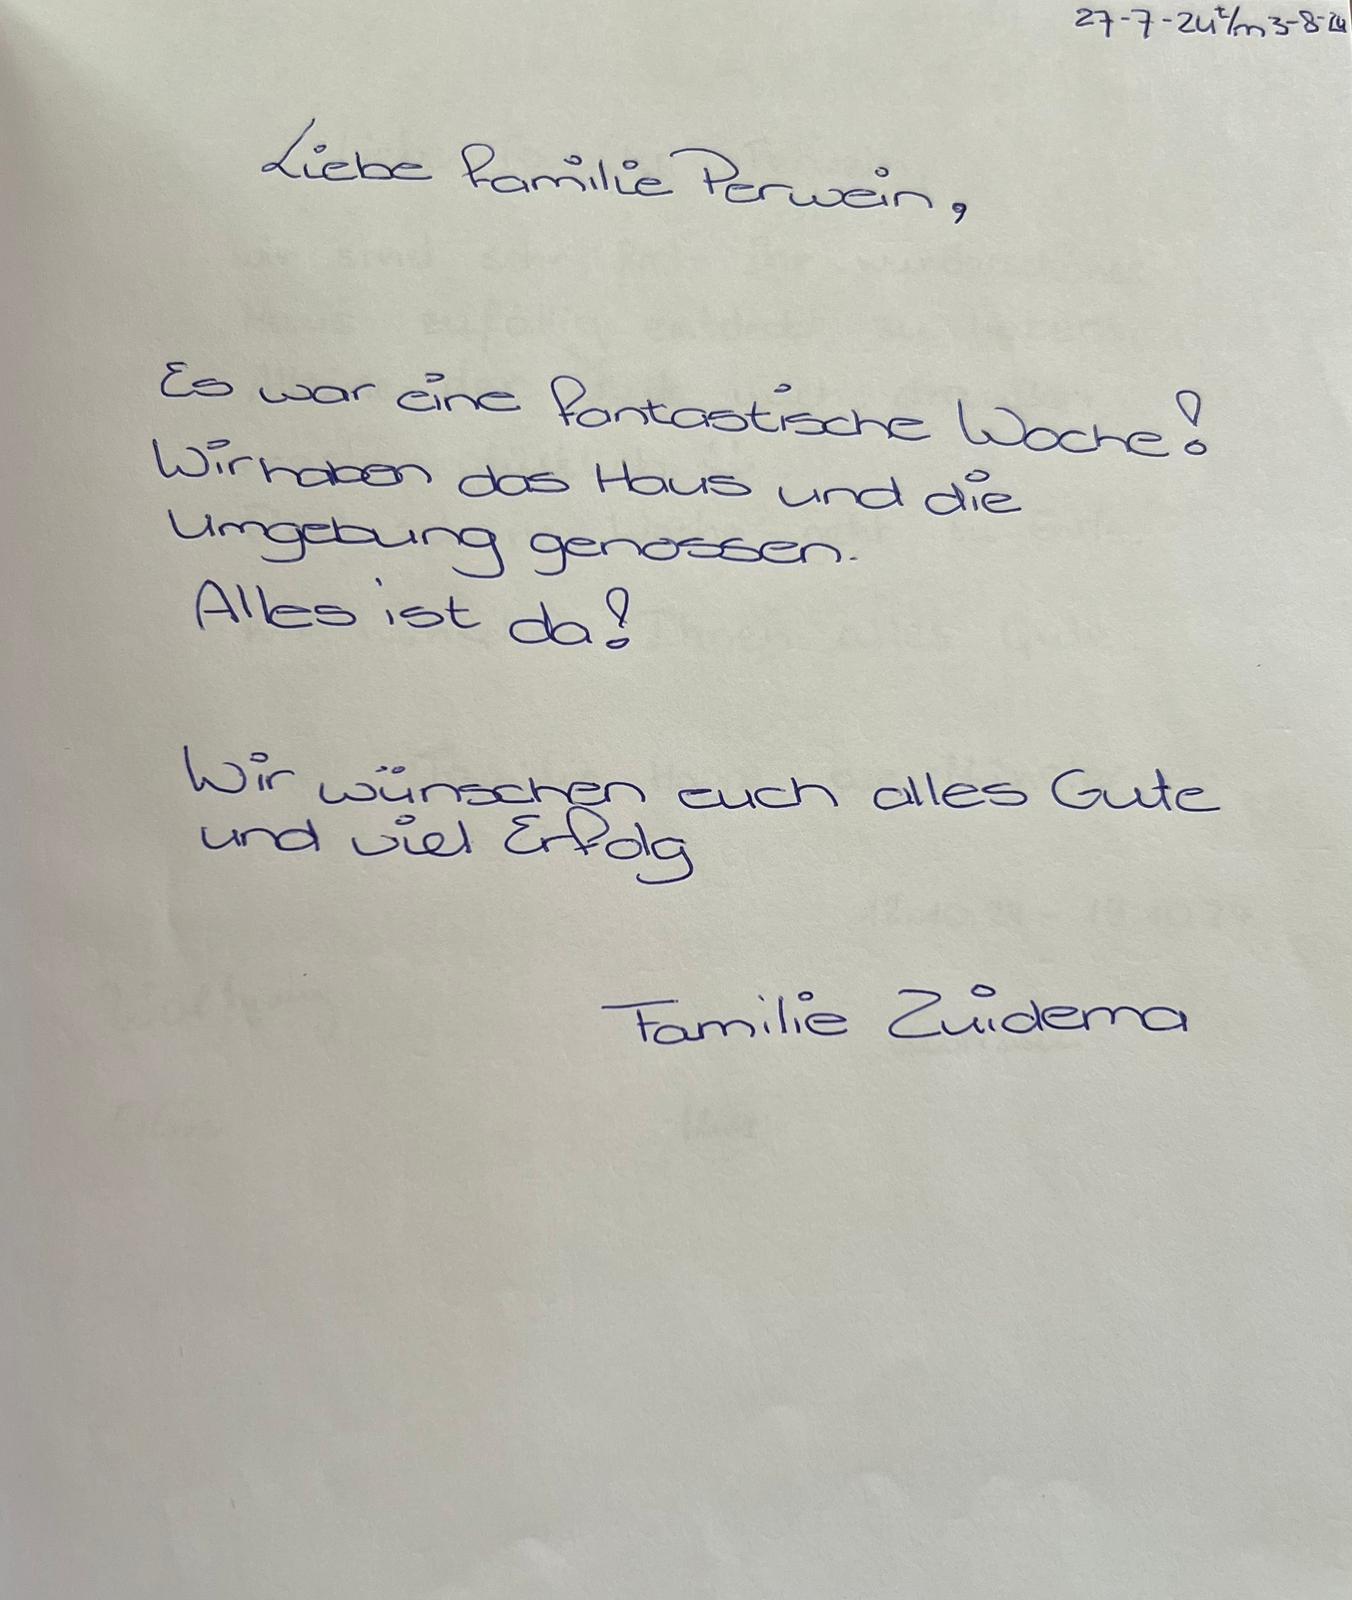 27-7-24 t/m 3-8-24
Liebe familie Perwein,
Es war eine fantastische Woche!
Wir haben das Haus und die
Umgebung genossen.
Alles ist da!
Wir wünschen euch alles Gute
und viel Erfolg
Familie Zuidema